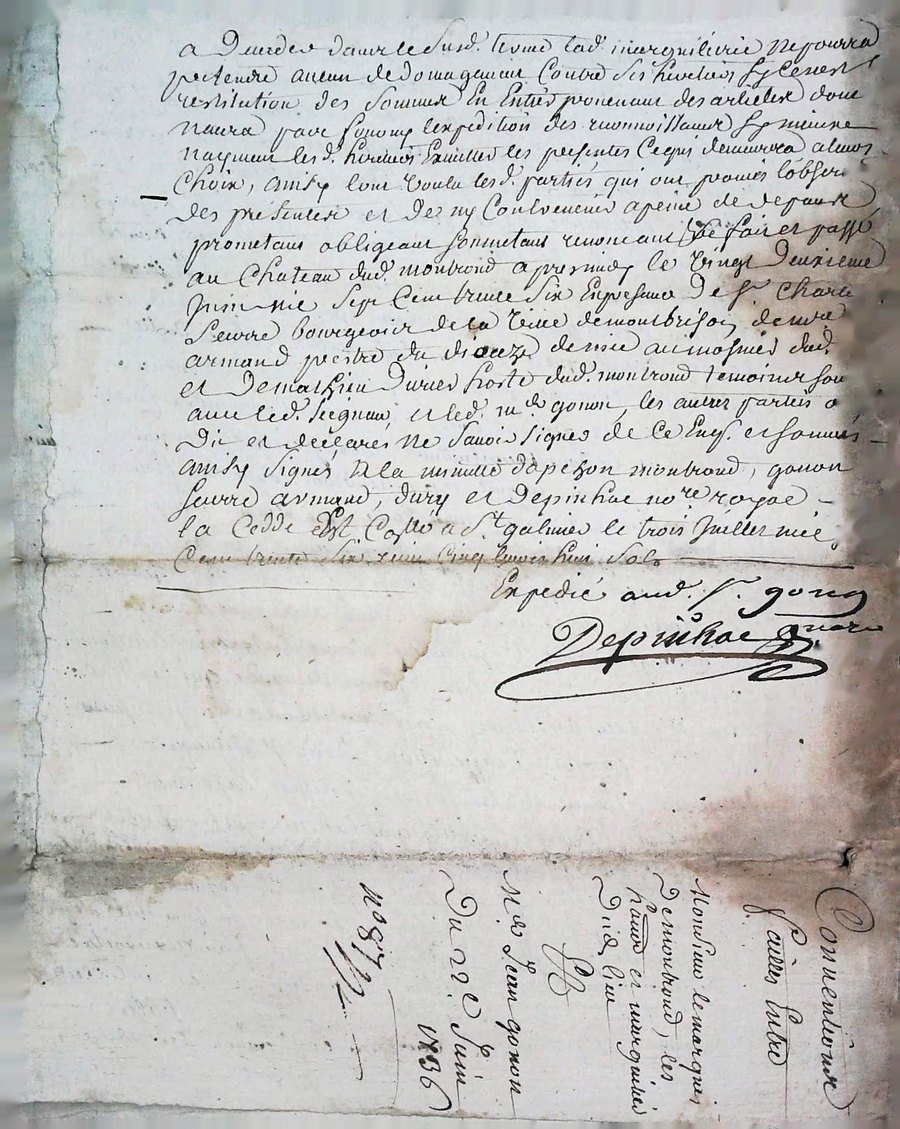 a        dans le susd. terme lad. marguillerie ne pourra
pretendre aucun dedomagement Contre
restitution des sommes En Entier provenant des articles dont
n'aura pas         l'expédition des reconnoissances
n'ayment lesd. heritiers Executer les presentes Ce qui demeurera a leurs
Choix, ainsy l'ont voulu lesd. parties qui ont promis l'observ
des presentes et de ny Contrevenir a peine de depans,
prometans obligeant soumetans renonceant fait et passé
au Chateau dud. montrond apresmidy le vingt deuxieme
juin mil sept Cent trente six En presence De Sr. Charle
Seurre bourgeois de la ville de montbrison, de
armand prêtre du dioceze de         aumosnier dud.
et De mathieu Durier hoste dud. montrond temoins sou
avec led. seigneur, et led. m.e gonon, les autres parties o
Dit et déclarés ne savoir signer de Ce Enq. et sommés
ainsy Signés a la minutte dapchon montrond, gonon
seurre armand, dury et Depinhac no.re royal
la Cedde Est Collé a St. galmier le trois Juillet mil
Cent trente six         Cinq livres huit sols
Expedié aud. Sr. gonon
Depinhac
Conventions
faittes Entre
Monsieur le marquis
De montrond, les
         et marguilier
Dud. lieu
Et
M.e Jean gonon
Du 22e Juin
1736
no 87